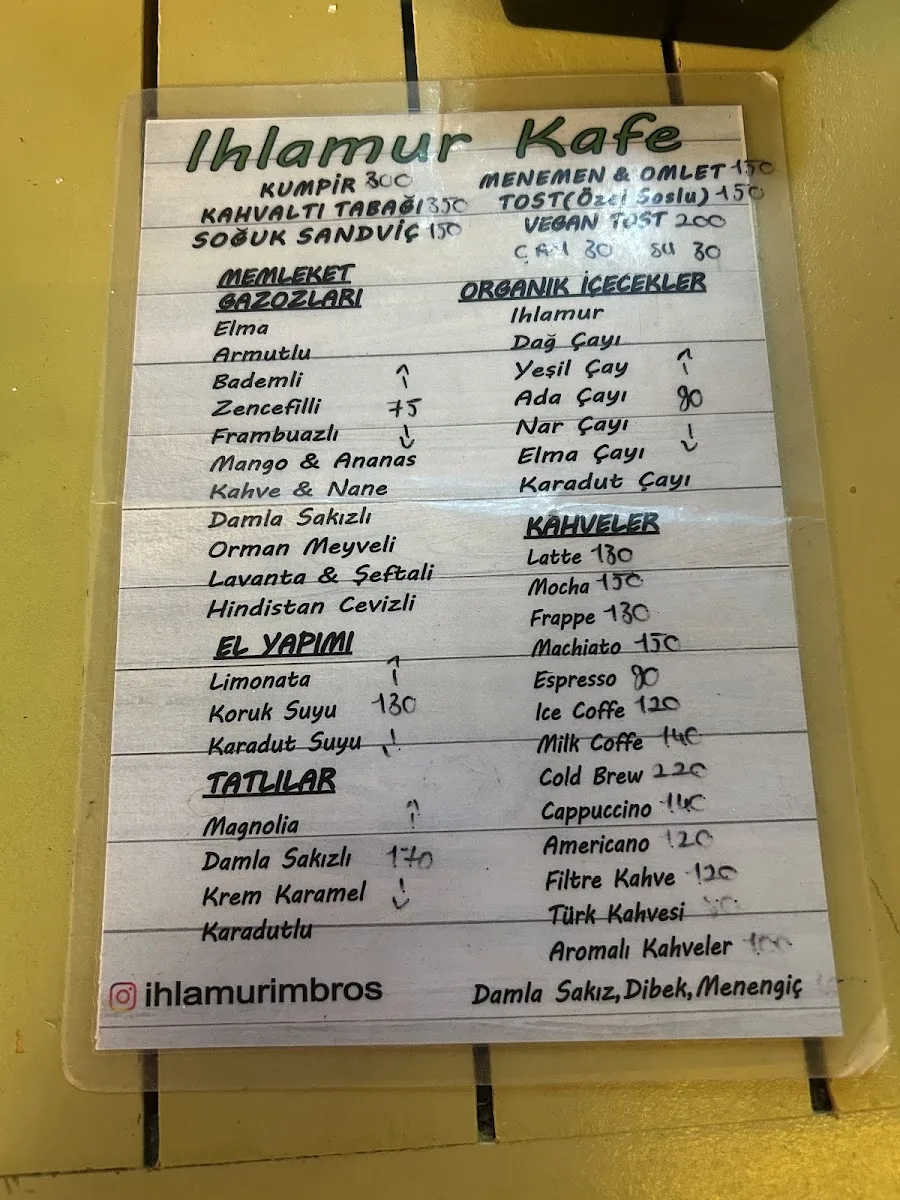 Ihlamur Kafe
KUMPİR 300
KAHVALTI TABAĞI 350
SOĞUK SANDVİÇ 150
MENEMEN & OMLET 150
TOST(Özel Soslu) 150
VEGAN TOST 200
ÇAY 30 SU 30
MEMLEKET
GAZOZLARI
Elma
Armutlu
Bademli
Zencefilli 75
Frambuazlı
Mango & Ananas
Kahve & Nane
Damla Sakızlı
Orman Meyveli
Lavanta & Şeftali
Hindistan Cevizli
EL YAPIMI
Limonata
Koruk Suyu 130
Karadut Suyu
TATLILAR
Magnolia
Damla Sakızlı 170
Krem Karamel
Karadutlu
ORGANIK İÇECEKLER
Ihlamur
Dağ Çayı
Yeşil Çay
Ada Çayı 90
Nar Çayı
Elma Çayı
Karadut Çayı
KAHVELER
Latte 130
Mocha 150
Frappe 130
Machiato 150
Espresso 90
Ice Coffe 120
Milk Coffe 140
Cold Brew 220
Cappuccino 140
Americano 120
Filtre Kahve 120
Türk Kahvesi
Aromalı Kahveler 100
Damla Sakız,Dibek,Menengiç
ihlamurimbros